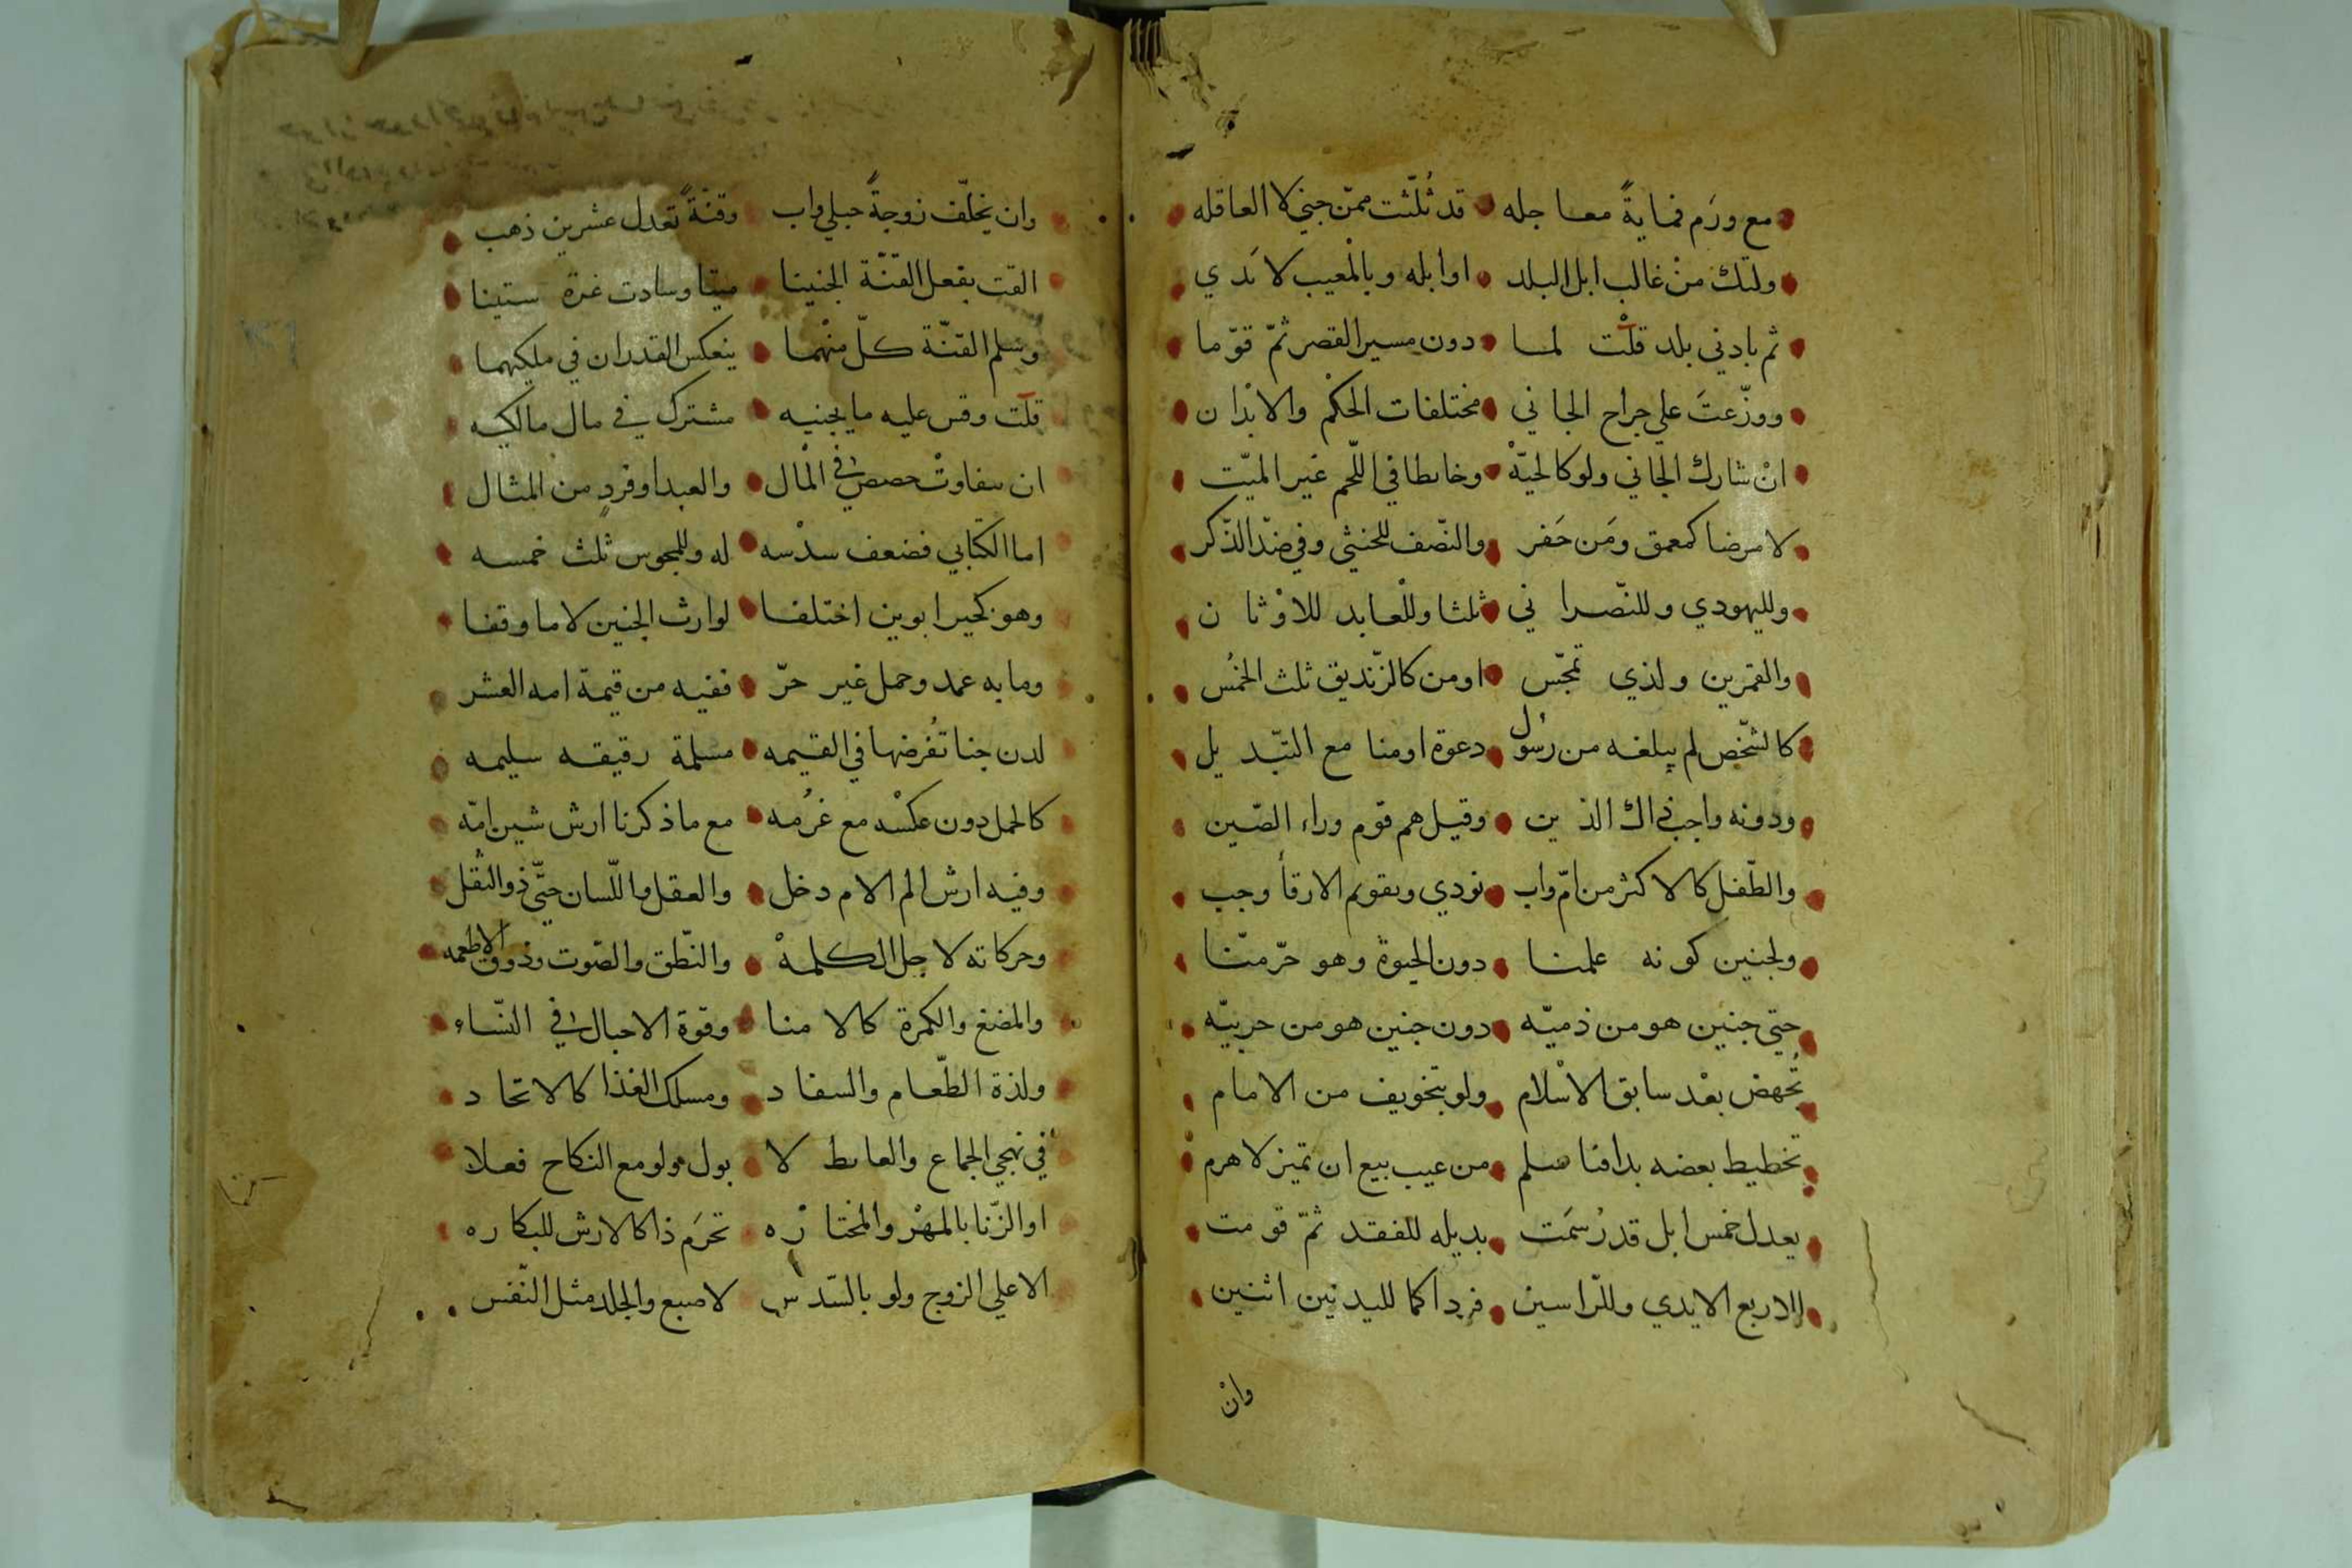 مع ورَم فماية معاجله قد ثُلّثت ممّن جني لا العاقله
ولتك منْ غالب ابل البلد او ابله وبالمعيب لا يَدي
ثم بادني بلد قلْت لما دون مسير القصر ثمّ قوّما
ووزّعتَ علي جراح الجاني مختلفات الحكْم والابْدان
انْ شارك الجاني ولو كالحيّهْ وخايطا في اللّحم غير الميّت
لا مرضا كمعمق ومَن حَفر والنّصف للخنثي وفي ضدّ الذّكر
ولليهودي وللنّصراني ثلثا وللْعابد للاوْثان
والقمرين ولذي تمجّس او من كالزّنديق ثلث الخمُس
كالشّخص لم يبلغه من رسُول دعوة او منا مع التبّديل
ودونه واجب ذاك الذين وقيل هم قوْم وراء الصّين
والطّفل كالاكثر من امّ واب نودي وبقويم الارقأ وجب
ولجنين كونه علمنا دون الحيوة وهو حرّ متّنا
حتي جنين هو من ذميّه دون جنين هو من حربيّه
تُجهض بعْد سابق الاسْلام ولو بتخويف من الامام
تخطيط بعضه بدا قنا سلم من عيب بيع ان تميز لا هرم
يعدل خمس ابل قد رُسمَت بديله للفقد ثمّ قومت
للاربع الايدي وللّراسين فردا كما لليدنين اثنين
وانْ
وان يخلّف زوجةً حبلي واب وقنّةً تعدل عشرين ذهب
القت بفعل القنّة الجنينا ميتا وساوت غرة ستينا
وسلم القنّة كلّ منْهما ينعكس القدران في ملكيهما
قلت وقس عليه ما يجنيه مشترك في مال مالكيه
ان تتفاوتْ حصص في الْمال والعبد او فردٍ من المثال
اما الكتابي فضعف سدْسه له وللمجوس ثلث خمسه
وهو كخير ابوين اختلفا لوارث الجنين لا ما وقفا
وما به عمد وحمل غير حرّ ففيه من قيمة امه العشر
لدن جنا تُفرضها في القيمه مسلمة رقيقه سليمه
كالحمل دون عكسْه مع غرُمه مع ما ذكرنا ارش شين امّه
وفيه ارش الم الام دخل والعقل واللّسان حتّي ذو الثقل
وحركاته لاجل الكلمهْ والنّطق والصّوت وذوق الاطعمه
والمضغ والكمرة كالامنا وقوة الاحبال في النّساء
ولذة الطّعام والسفاد ومسلك الغذا كالاتحاد
في نهجي الجماع والغايط لا بول ولو مع النكاح فعلا
او الزّنا بالمهْر والمختارْه تحرَم ذا كالارش للبكاره
الا علي الزوج ولو بالسّدس لاصبع والجلد مثل النّفس